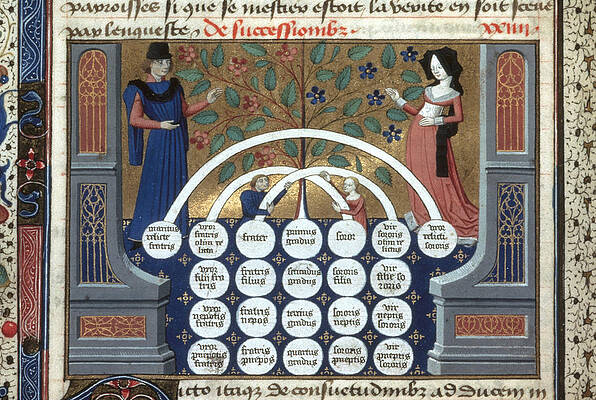 paroisses si que se mestier estoit la verite en soit sceue
par lenqueste De successiombz xxiiii
uxor fratris olim relicta
frater
primus gradus
soror
vir sororis olim relictus
vir relicte sororis
uxor filii fratris
fratris filius
secundus gradus
sororis filia
vir filie sororis
uxor nepotis fratris
fratris nepos
tercius gradus
sororis neptis
vir neptis sororis
uxor pnepotis fratris
fratris pnepos
quartus gradus
sororis pneptis
vir pneptis sororis
icto itaque de consuetudinibz ad ducem in